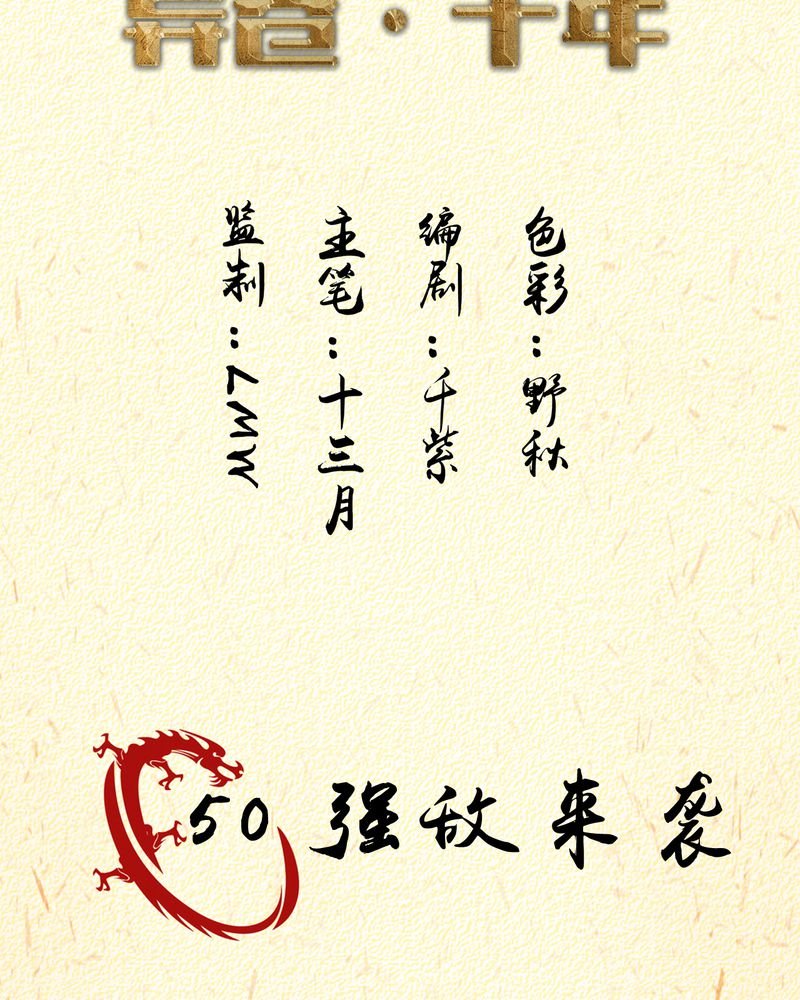 色彩：野秋
编剧：千紫
主笔：十三月
监制：MW7
50 强敌来袭